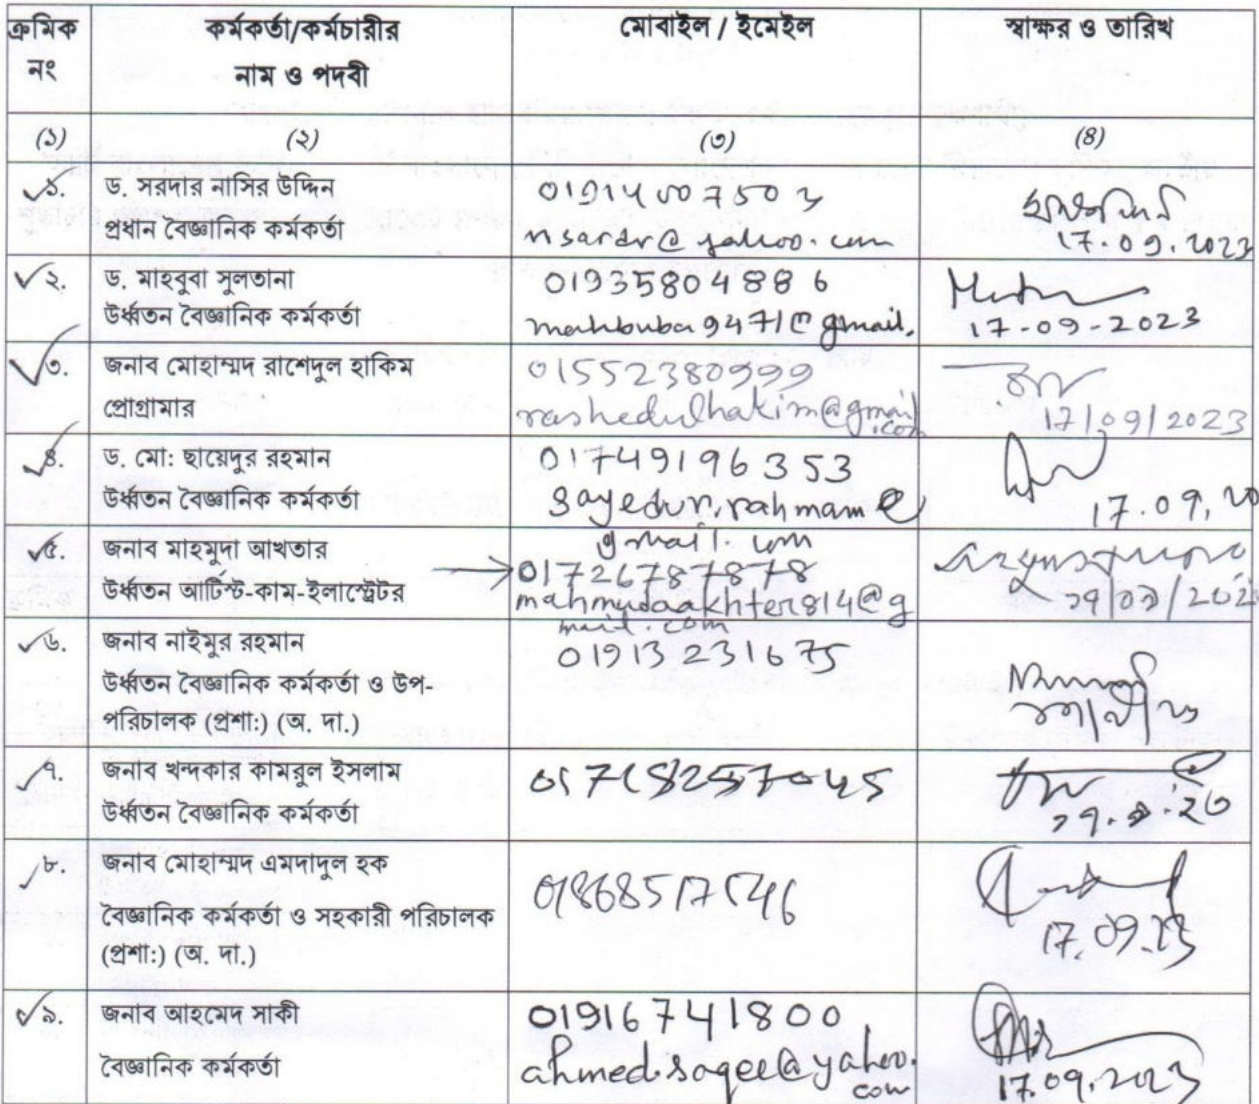 ক্রমিক নং
কর্মকর্তা/কর্মচারীর
নাম ও পদবী
মোবাইল / ইমেইল
স্বাক্ষর ও তারিখ
(১) (২) (৩) (৪)
১. ড. সরদার নাসির উদ্দিন
প্রধান বৈজ্ঞানিক কর্মকর্তা
nsardr@yahoo.com
17.09.2023
২. ড. মাহবুবা সুলতানা
উর্ধ্বতন বৈজ্ঞানিক কর্মকর্তা
01935804886
mahbuba9471@gmail.
17-09-2023
৩. জনাব মোহাম্মদ রাশেদুল হাকিম
প্রোগ্রামার
01552380999
rashedulhakim@gmail
.com
17/09/2023
৪. ড. মো: ছায়েদুর রহমান
উর্ধ্বতন বৈজ্ঞানিক কর্মকর্তা
01749196353
sayedurrahmam@
gmail.com
17.09.20
৫. জনাব মাহমুদা আখতার
উর্ধ্বতন আর্টিস্ট-কাম-ইলাস্ট্রেটর
01726787878
mahmudaakhter814@g
mail.com
১৭/০৯/202
৬. জনাব নাইমুর রহমান
উর্ধ্বতন বৈজ্ঞানিক কর্মকর্তা ও উপ-
পরিচালক (প্রশা:) (অ. দা.)
01913231675
৭. জনাব খন্দকার কামরুল ইসলাম
উর্ধ্বতন বৈজ্ঞানিক কর্মকর্তা
01718257045
১৭.৯.২৩
৮. জনাব মোহাম্মদ এমদাদুল হক
বৈজ্ঞানিক কর্মকর্তা ও সহকারী পরিচালক
(প্রশা:) (অ. দা.)
01868517546
17.09.23
৯. জনাব আহমেদ সাকী
বৈজ্ঞানিক কর্মকর্তা
01916741800
ahmed.saqee@yahoo.
com
17.09.2023